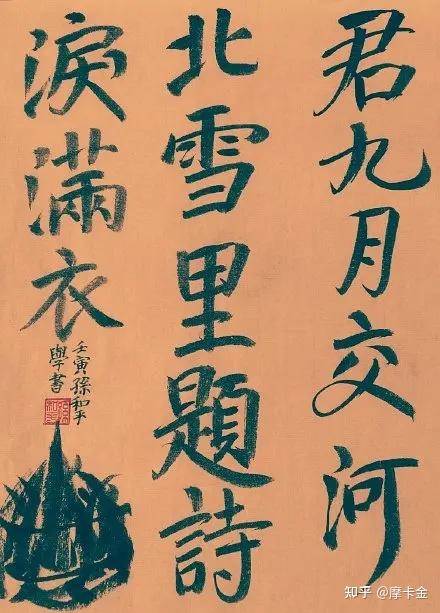 君九月交河
北雪里題詩
淚滿衣
壬寅孫和平
學書
知乎 @摩卡金